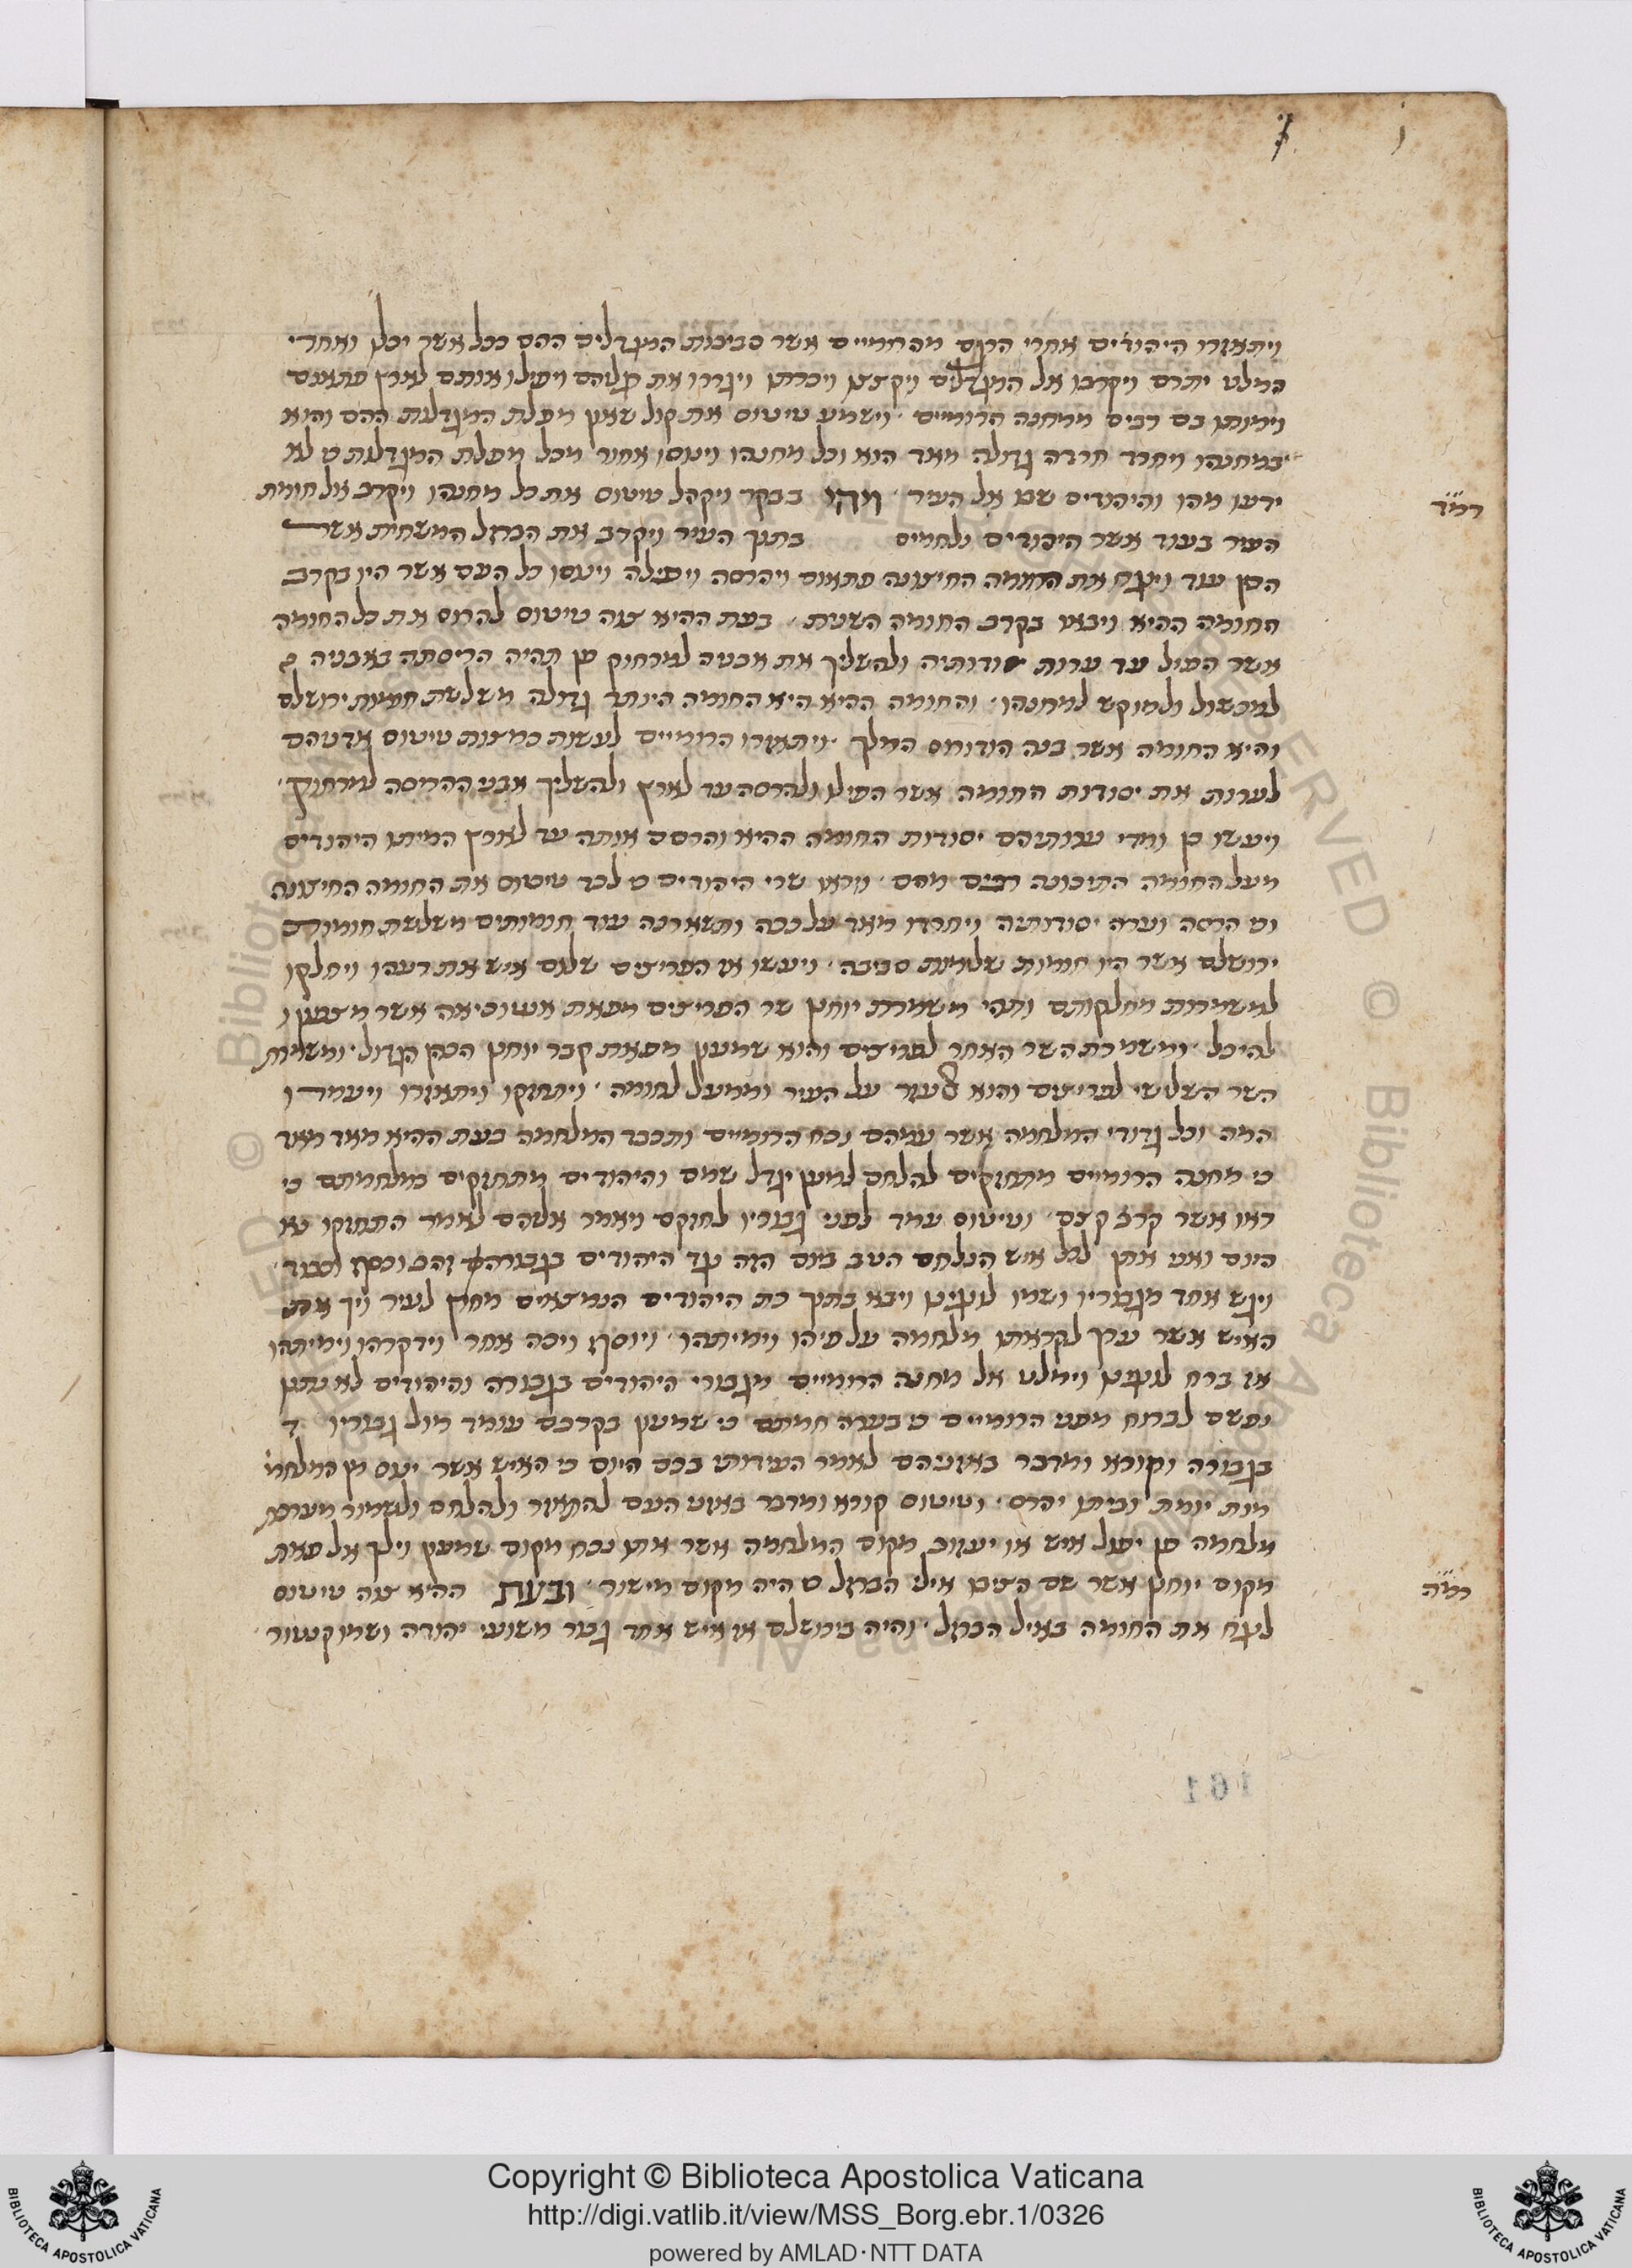 ויתאזרו היהודים אחרי הנוס מהרומיים אשר סביבות המגדלים ההם ככל אשר יכלו ואחרי
המלט יתרם ויקרבו אל המגדלים ויקצצו ויכרתו ויגררו את רגליהם ויפילו אותם לארץ פתאום
וימותו בם רבים ממחנה הרומיים וישמע טיטוס את קול שאון מפלת המגדלות ההם והוא
במחנהו ויחרד חרדה גדולה מאד הוא וכל מחנהו וינוסו אחור מכל מפלת המגדלות כי לא
ידעו מהו והיהודים שבו אל העיר ויהי בבקר ויקהל טיטוס את כל מחנהו ויקרב אל חומת
רמד
העיר בעוד אשר היהודים נלחמים בתוך העיר ויקרב את הברזל המשחית אשר
הכין עוד וינגח את החומה החיצונה פתאום ויהרסה ויפילה וינוסו כל העם אשר היו בקרב
החומה ההיא ויבואו בקרב החומה השנית בעת ההיא צוה טיטוס להרוס את כל החומה
אשר הפיל עד ערות יסודותיה ולהשליך את אבניה למרחוק פן תהיה הריסתה באבניה
למכשול ולמוקש למחנהו והחומה ההיא היא החומה היותר גדולה משלשת חומות ירושלם
והיא החומה אשר בנה הורודוס המלך ויתאזרו הרומיים לעשות כמצות טיטוס אדניהם
לערות את יסודות החומה אשר הפילו ולהרסה עד לארץ ולהשליך אבני ההריסה למרחוק
ויעשו כן ומדי ערותהם יסודות החומה ההיא והרסם אותה עד לארץ המיתו היהודים
מעל החומה התיכונה רבים מהם ויראו שרי היהודים כי לכד טיטוס את החומה החיצונה
וכי הרסה וערה יסודותיה ויחרדו מאד על ככה ותשארנה עוד חומותים משלשת חומות
ירושלם אשר היו חומות שלמות סביבה ויעשו אז הפריצים שלום איש את רעהו ויחלקו
למשמרות מחלקותם ותהי משמרת יוחנן שר הפריצים מפאת אנטוכיאה אשר מצפון
להיכל ומשמרת השר האחר לפריצים והוא שמעון מפאת קבר יוחנן הכהן הגדול ומשמרת
השר השלישי לפריצים והוא אלעזר על העיר וממעל לחומה ויתחזקו ויתאזרו ויעמדו
המה וכל גדודי המלחמה אשר עמהם נכח הרומיים ותכבד המלחמה בעת ההיא מאד מאד
כי מחנה הרומיים מתחזקים להלחם למען יגדל שמם והיהודים מתחזקים במלחמתם כי
ראו אשר קרב קצם וטיטוס עמד לפני גבוריו לחזקם ויאמר אליהם לאמר התחזקו נא
היום ואני אתן לכל איש הנלחם הטב ביום הזה עד היהודים בגבורה זהב וכסף וכבוד
ויגש אחד מגבוריו ושמו לונגינו ויבא בתוך כת היהודים הנמצאים מחוץ לעיר ויך את
האיש אשר ערך לקראתו מלחמה על פיהו וימיתהו ויוסף ויכה אחר וידקרהו וימיתהו
אז ברח לונגינו וימלט אל מחנה הרומיים מגבורי היהודים בגבורה והיהודים לא נתנו
נפשם לברוח מפני הרומיים כי בערה חמתם כי שמעון בקרבם עומד מול גבוריו
בגבורה וקורא ומדבר באזניהם לאמר העידותי בכם היום כי האיש אשר ינוס מן המלחמ
מות יומת וביתו יהרס וטיטוס קורא ומדבר באזני העם להתאזר ולהלחם ולשמור מערכת
מלחמה פן יפול איש או יעזוב מקום המלחמה אשר אתו נכח מקום שמעון וילך אל פאת
מקום יוחנן אשר שם הציבו אילי הברזל כי היה מקום מישור ובעת ההיא צוה טיטוס
רמה
לנגח את החומה באיל הברזל והיה בירושלם אז איש אחד גבור משועי יהודה ושמו קסטור
161
Copyright © Biblioteca Apostolica Vaticana
http://digi.vatlib.it/view/MSS_Borg.ebr.1/0326
powered by AMLAD·NTT DATA
BIBLIOTECA APOSTOLICA VATICANA
BIBLIOTECA APOSTOLICA VATICANA